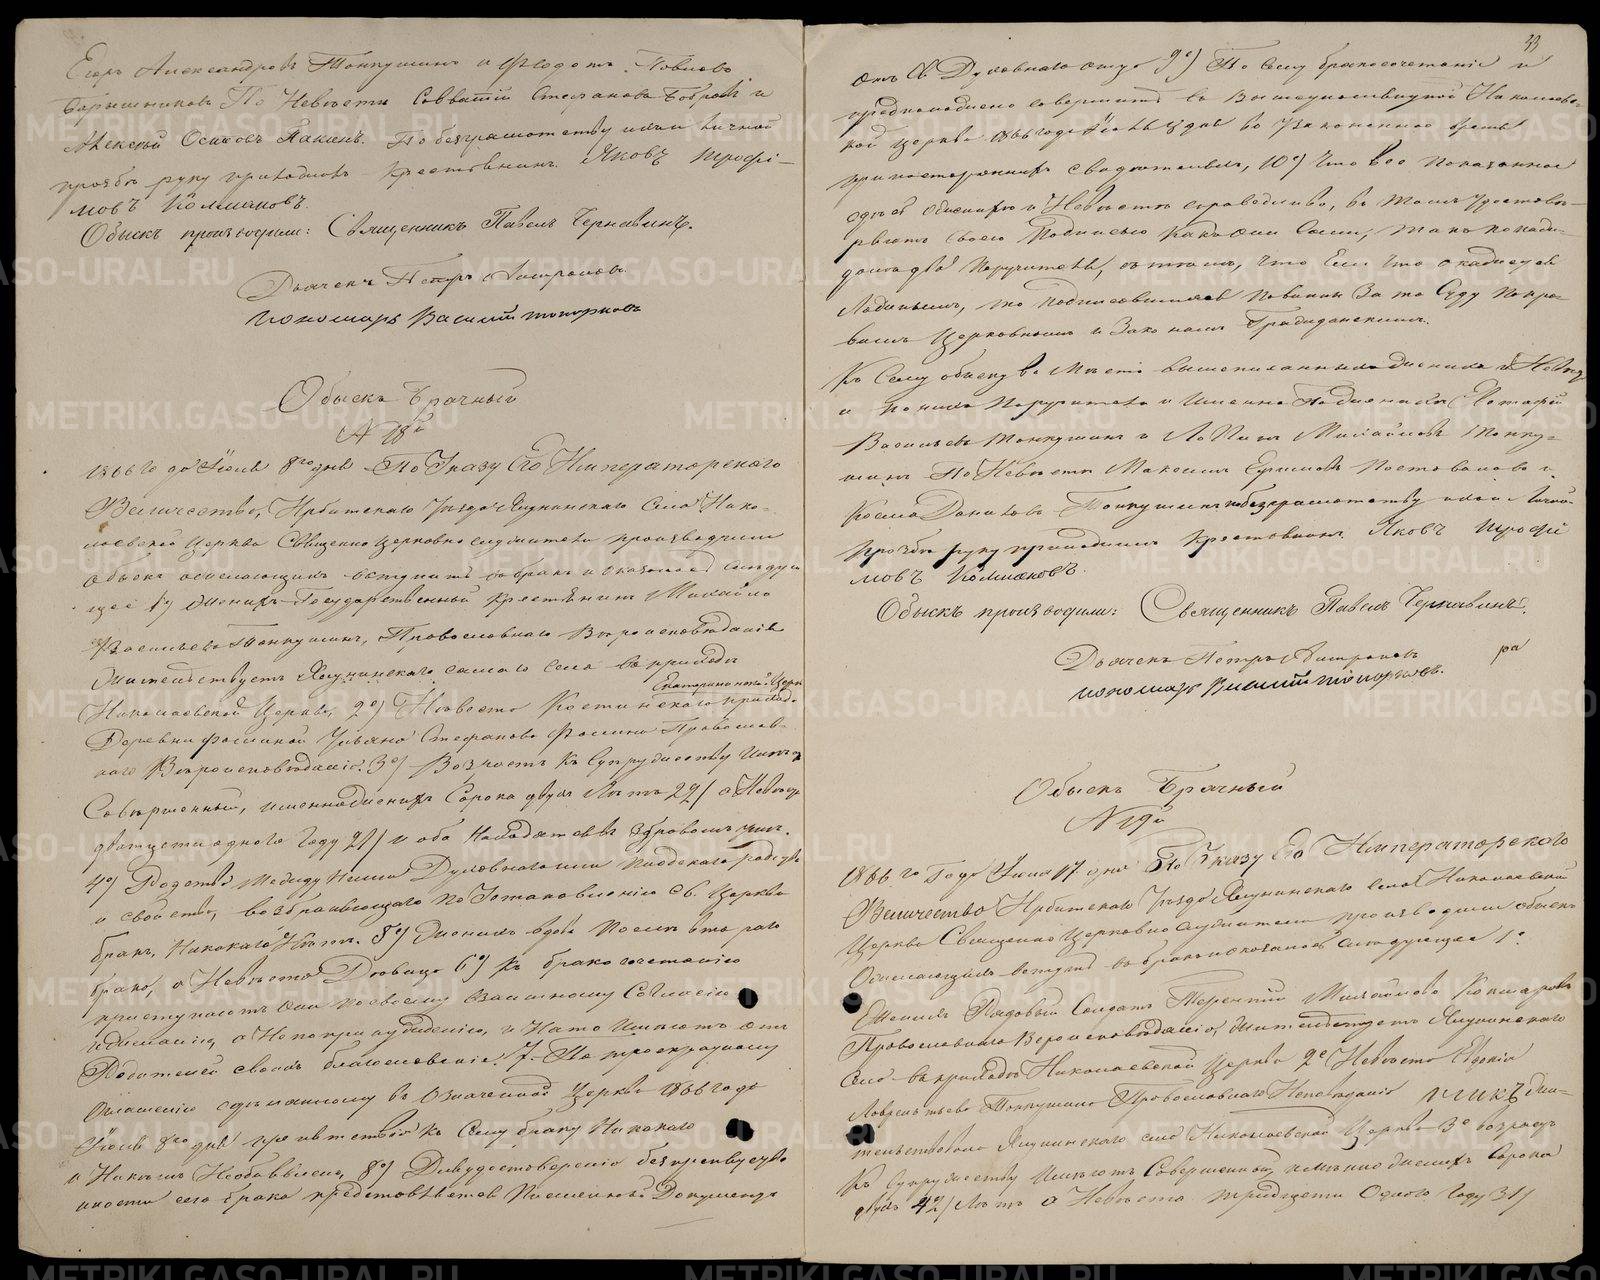 Егоръ Александровъ Топкушинъ и Федотъ Павловъ
Барышниковъ По Невестѣ Савватій Стефановъ Бобровъ и
Алексѣй Осиповъ По безграмотству ихъ и личной
прозьбѣ руку приложилъ Крестьянинъ Яковъ Трофи-
мовъ Колмаковъ.
Обыскъ производили: Священникъ Павелъ Чернавинъ.
Дьячекъ Петръ
Пономарь Василій Топорковъ
Обыскъ Брачный
N 18й
1866го года Іюля 8го дня По Указу Его Императорскаго
Величества, Ирбитскаго Уѣзда Ницинскаго Села Нико-
лаевской Церкви Священно Церковно служители производили
обыскъ о желающихъ вступить въ бракъ и оказалось слѣдую
щее 1) Женихъ Государственный Крестьянинъ Михайло
Васильевъ Топкушинъ, Православнаго Вероисповѣданія
Жительствуетъ самаго села въ приходѣ
Екатерининской Церк
Николаевской Церкви, 2е) Невеста Костинскаго приход.
Деревни Фоминой Ульяна Стефанова Фомина Православ-
наго Вѣроисповѣданія. 3е) Возрастъ къ Супружеству Имѣютъ
Совершенный, именно женихъ Сорока двухъ Лѣтъ 42/ а Невеста
дватцети одного Году 21/ и оба находятся въ здравомъ умѣ.
4е) Родства Между Ними Духовнаго или плотскаго родства
и свойства, возбраняющаго по Установленію Св. Церкви
бракъ, Никакаго Нѣтъ. 5е) Женихъ вдовъ послѣ втораго
брака, а Невеста Дѣвица 6е) Къ бракосочетанію
приступаютъ Они по своему Взаимному Согласію
и желанію, а Не по принужденію, и На то Имѣютъ отъ
Родителей своихъ благословеніе. 7. По троекратному
Оглашенію сдѣланному въ Означенной Церкви 1866 года
Іюля 8го дня препятствія къ Сему браку Никакаго
и Никѣмъ Необъявлено, 8е) Для удостоверенія безпрепятств
енности сего брака представляется Письменной Документъ
33
отъ Св Духовнаго отца 9е) По Сему бракосочетаніе и
предположено совершить въ Вышеупомянутой Николаев-
кой церкви 1866 года Іюля 8 дня во узаконенное время
при постороннихъ свидѣтеляхъ, 10е) Что все показанное
здѣсь О женихѣ и Невѣстѣ справедливо, въ томъ удостовѣ-
ряютъ Своею Подписью какъ они Сами, такъ и по каж-
дому два Поручителя, съ тѣмъ, что Если что окажется
Ложнымъ, то подписавшіяся повинны За то Суду по пра-
виламъ Церковнымъ и Законамъ Гражданскимъ.
Къ Сему обыску вместо вышеписанныхъ жениха и Невесты
и по нихъ Поручителей и Именно По женихѣ Потафій
Васильевъ Топкушинъ и Михайловъ Топку-
шинъ По Невѣстѣ Максимъ Ефимовъ Постоваловъ и
Косма Даниловъ Топкушинъ по безграмотству ихъ и Личной
прозьбѣ руку приложилъ Крестьянинъ Яковъ Трофи
мовъ Колмаковъ.
Обыскъ производили: Священникъ Павелъ Чернавинъ.
Дьячекъ Петръ
Пономарь Василій Топорковъ.
Обыскъ Брачный
N 19й
1866го Года Іюля 17 дня По Указу Его Императорскаго
Величества Ирбитскаго Уѣзда Ницинскаго села Николаевской
Церкви Священно Церковно служители производили обыскъ
О желающихъ вступить въ бракъ и оказалось слѣдующее 1е
Женихъ Рядовый Солдатъ Терентій Михайловъ Комаровъ
Православнаго Вероисповѣданія, Жительствуетъ Ницинскаго
села въ приходѣ Николаевской Церкви 2е Невеста Евдокія
Лаврентьева Топкушина Православнаго Исповѣданія жи-
тельствовала Ницинскаго села Николаевской Церкви 3е возрастъ
Къ Супружеству Имѣютъ Совершенный, именно женихъ Сорока
двухъ 42/ Лѣтъ а Невеста тридцети Одного Году 31/